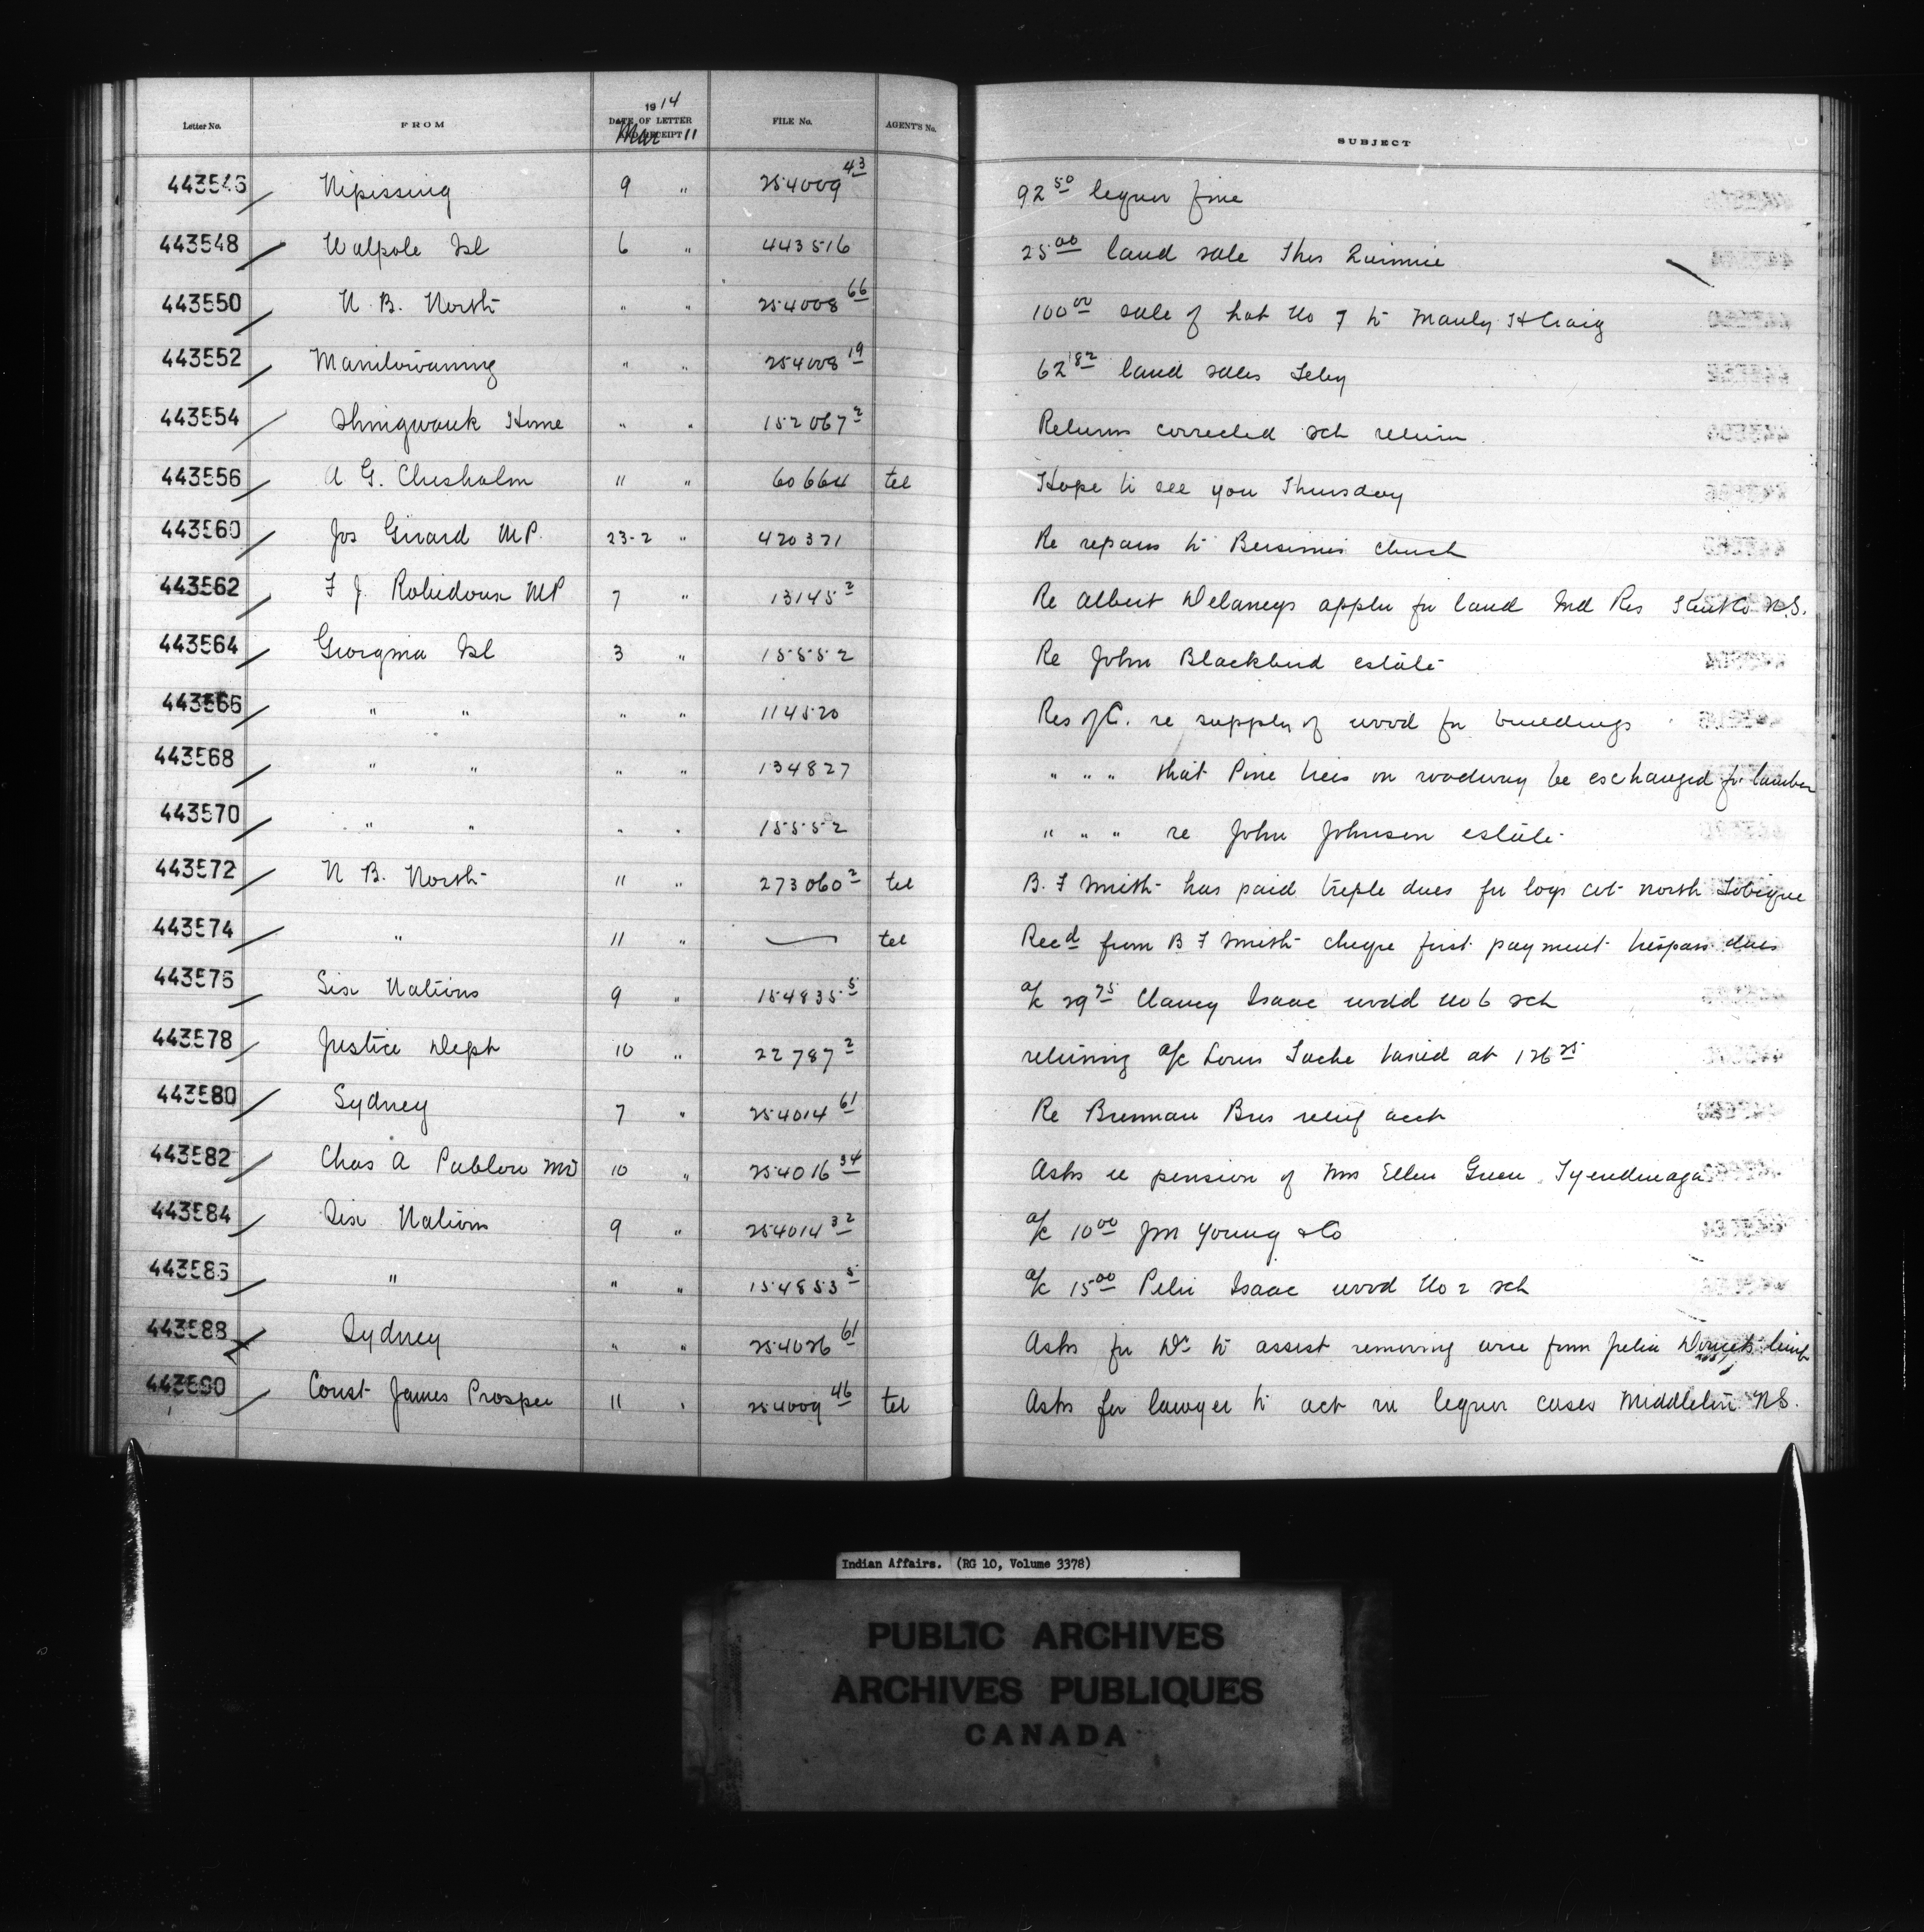 Letter No. FROM 1914 DATE OF LETTER AND RECEIPT Mar 11 FILE No. AGENT'S No. SUBJECT
443546 Nipissing 9 " 254009 43 92 50 liquor fine
443548 Walpole Isl 6 " 443516 25 00 land sale Thos
443550 N. B. North " " 254008 66 100 00 sale of Lot No 7 to Manly H Craig
443552 Manitowaning " " 254008 19 62 82 land sales Feby
443554 Shingwauk Home " " 152067 2 Returns corrected sch return
443556 A G. Chisholm " " 60664 tel Hope to see you Thursday
443560 Jos Girard MP. 23-2 " 420371 Re repairs to Bersimis church
443562 F J. Robidoux MP 7 " 13145 2 Re Albert Delaneys appln for land Ind Res Kent Co N.S.
443564 Georgina Isl 3 " 15552 Re John Blackbird estate
443566 " " " " 114520 Res of C. re supply of wood for buildings
443568 " " " " 134827 " " " that Pine trees on roadway be exchanged for lumber
443570 " " " " 15552 " " " re John Johnson estate
443572 N B. North 11 " 273060 2 tel B. F Smith has paid triple dues for logs cut north Tobique
443574 " 11 " tel Recd from B F Smith cheque first payment trespass dues
443576 Six Nations 9 " 154835 5 a/c 29 75 Isaac wood No 6 sch
443578 Justice Dept 10 " 22787 2 returning a/c Louis Tache taxed at 126 25
443580 Sydney 7 " 254014 61 Re Brennan Bros relief acct
443582 Chas A MD 10 " 254016 34 Asks re pension of Mrs Ellen Green Tyendinaga
443584 Six Nations 9 " 254014 32 a/c 10 00 Jm Young & Co
443586 " " " 154853 5 a/c 15 00 Peter Isaac wood No 2 sch
443588 Sydney " " 254026 61 Asks for Dr to assist removing wire from Julia limb
443590 Const James Prosper 11 " 254009 46 tel Asks for lawyer to act in liquor cases Middleton NS.
Indian Affairs. (RG 10, Volume 3378)
PUBLIC ARCHIVES
ARCHIVES PUBLIQUES
CANADA